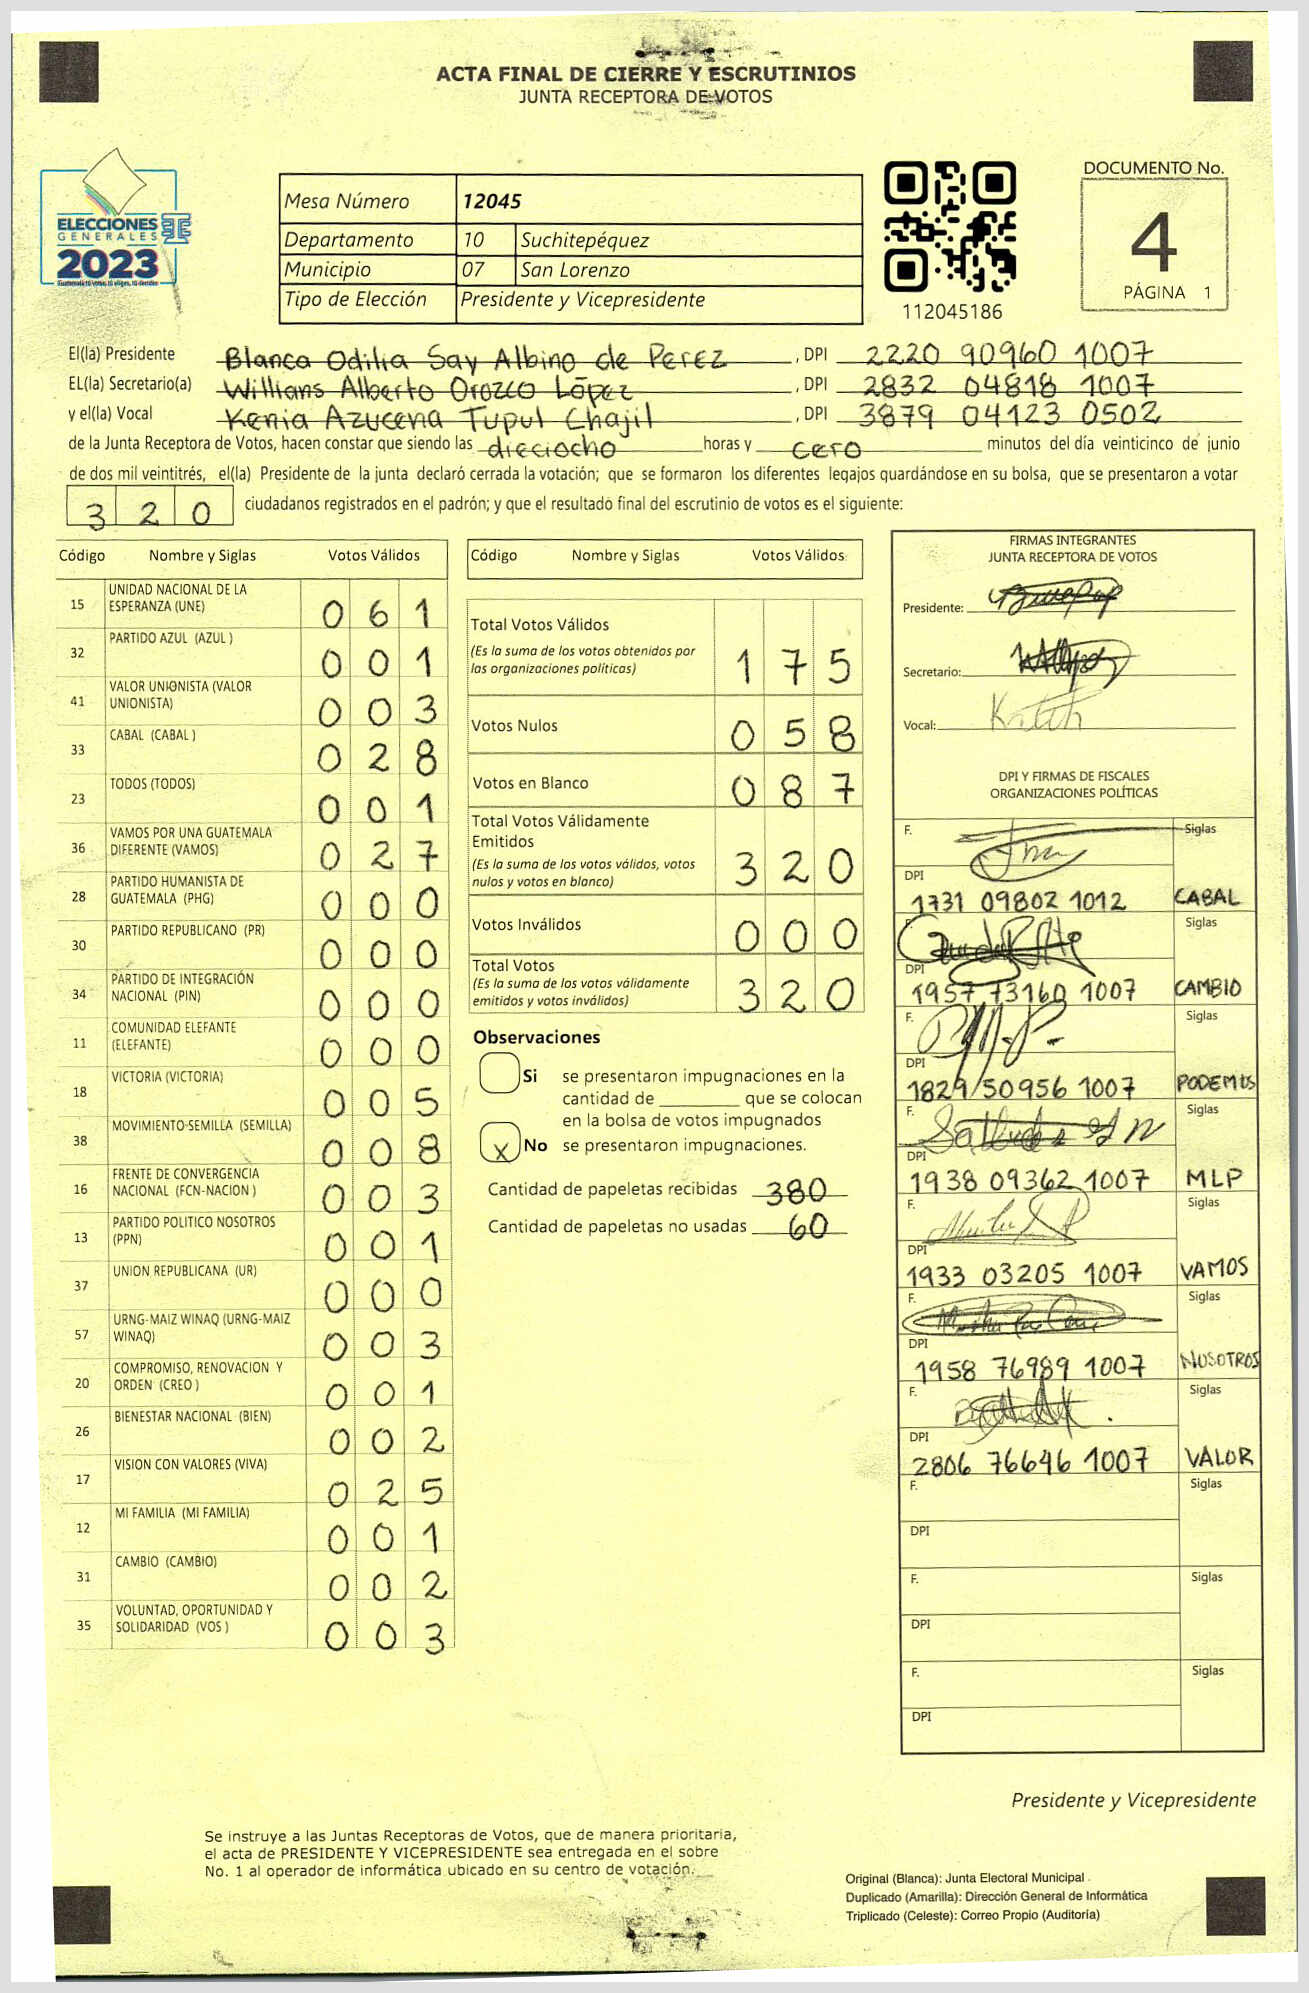 ACTA FINAL DE CIERRE Y ESCRUTINIOS
JUNTA RECEPTORA DE VOTOS
ELECCIONES
GENERALES
2023
Mesa Número 12045
Departamento 10 Suchitepéquez
Municipio 07 San Lorenzo
Tipo de Elección Presidente y Vicepresidente
112045186
DOCUMENTO No.
4
PÁGINA 1
El(la) Presidente Blanca Odilia Say Albino de Perez, DPI 2220 90960 1007
EL(la) Secretario(a) Willians Alberto Orozco López, DPI 2832 04818 1007
y el(la) Vocal Kenia Azucena Tupul Chajil, DPI 3879 04123 0502
de la Junta Receptora de Votos, hacen constar que siendo las dieciocho horas y cero minutos del día veinticinco de junio
de dos mil veintitrés, el(la) Presidente de la junta declaró cerrada la votación; que se formaron los diferentes legajos quardándose en su bolsa, que se presentaron a votar
320 ciudadanos registrados en el padrón; y que el resultado final del escrutinio de votos es el siguiente:
Código Nombre y Siglas Votos Válidos
15 UNIDAD NACIONAL DE LA
ESPERANZA (UNE) 061
32 PARTIDO AZUL (AZUL ) 001
41 VALOR UNIONISTA (VALOR
UNIONISTA) 003
33 CABAL (CABAL ) 028
23 TODOS (TODOS) 001
36 VAMOS POR UNA GUATEMALA
DIFERENTE (VAMOS) 027
28 PARTIDO HUMANISTA DE
GUATEMALA (PHG) 000
30 PARTIDO REPUBLICANO (PR) 000
34 PARTIDO DE INTEGRACIÓN
NACIONAL (PIN) 000
11 COMUNIDAD ELEFANTE
(ELEFANTE) 000
18 VICTORIA (VICTORIA) 005
38 MOVIMIENTO SEMILLA (SEMILLA) 008
16 FRENTE DE CONVERGENCIA
NACIONAL (FCN-NACION ) 003
13 PARTIDO POLITICO NOSOTROS
(PPN) 001
37 UNION REPUBLICANA (UR) 000
57 URNG-MAIZ WINAQ (URNG-MAIZ
WINAQ) 003
20 COMPROMISO, RENOVACION Y
ORDEN (CREO ) 001
26 BIENESTAR NACIONAL (BIEN) 002
17 VISION CON VALORES (VIVA) 025
12 MI FAMILIA (MI FAMILIA) 001
31 CAMBIO (CAMBIO) 002
35 VOLUNTAD, OPORTUNIDAD Y
SOLIDARIDAD (VOS ) 003
Código Nombre y Siglas Votos Válidos
Total Votos Válidos
(Es la suma de los votos obtenidos por
las organizaciones políticas) 175
Votos Nulos 058
Votos en Blanco 087
Total Votos Válidamente
Emitidos
(Es la suma de los votos válidos, votos
nulos y votos en blanco) 320
Votos Inválidos 000
Total Votos
(Es la suma de los votos válidamente
emitidos y votos inválidos) 320
Observaciones
Si se presentaron impugnaciones en la
cantidad de ________ que se colocan
en la bolsa de votos impugnados
X No se presentaron impugnaciones.
Cantidad de papeletas recibidas 380
Cantidad de papeletas no usadas 60
FIRMAS INTEGRANTES
JUNTA RECEPTORA DE VOTOS
Presidente:
Secretario:
Vocal:
DPI Y FIRMAS DE FISCALES
ORGANIZACIONES POLÍTICAS
F. Siglas
DPI
1731 09802 1012 CABAL
Siglas
DPI
1957 73160 1007 CAMBIO
F. Siglas
DPI
1829 50956 1007 PODEMOS
F. Siglas
DPI
1938 09362 1007 MLP
F. Siglas
DPI
1933 03205 1007 VAMOS
F. Siglas
DPI
1958 76989 1007 NOSOTROS
F. Siglas
DPI
2806 76646 1007 VALOR
F. Siglas
DPI
F. Siglas
DPI
F. Siglas
DPI
Presidente y Vicepresidente
Se instruye a las Juntas Receptoras de Votos, que de manera prioritaria,
el acta de PRESIDENTE Y VICEPRESIDENTE sea entregada en el sobre
No. 1 al operador de informática ubicado en su centro de votación.
Original (Blanca): Junta Electoral Municipal
Duplicado (Amarilla): Dirección General de Informática
Triplicado (Celeste): Correo Propio (Auditoría)